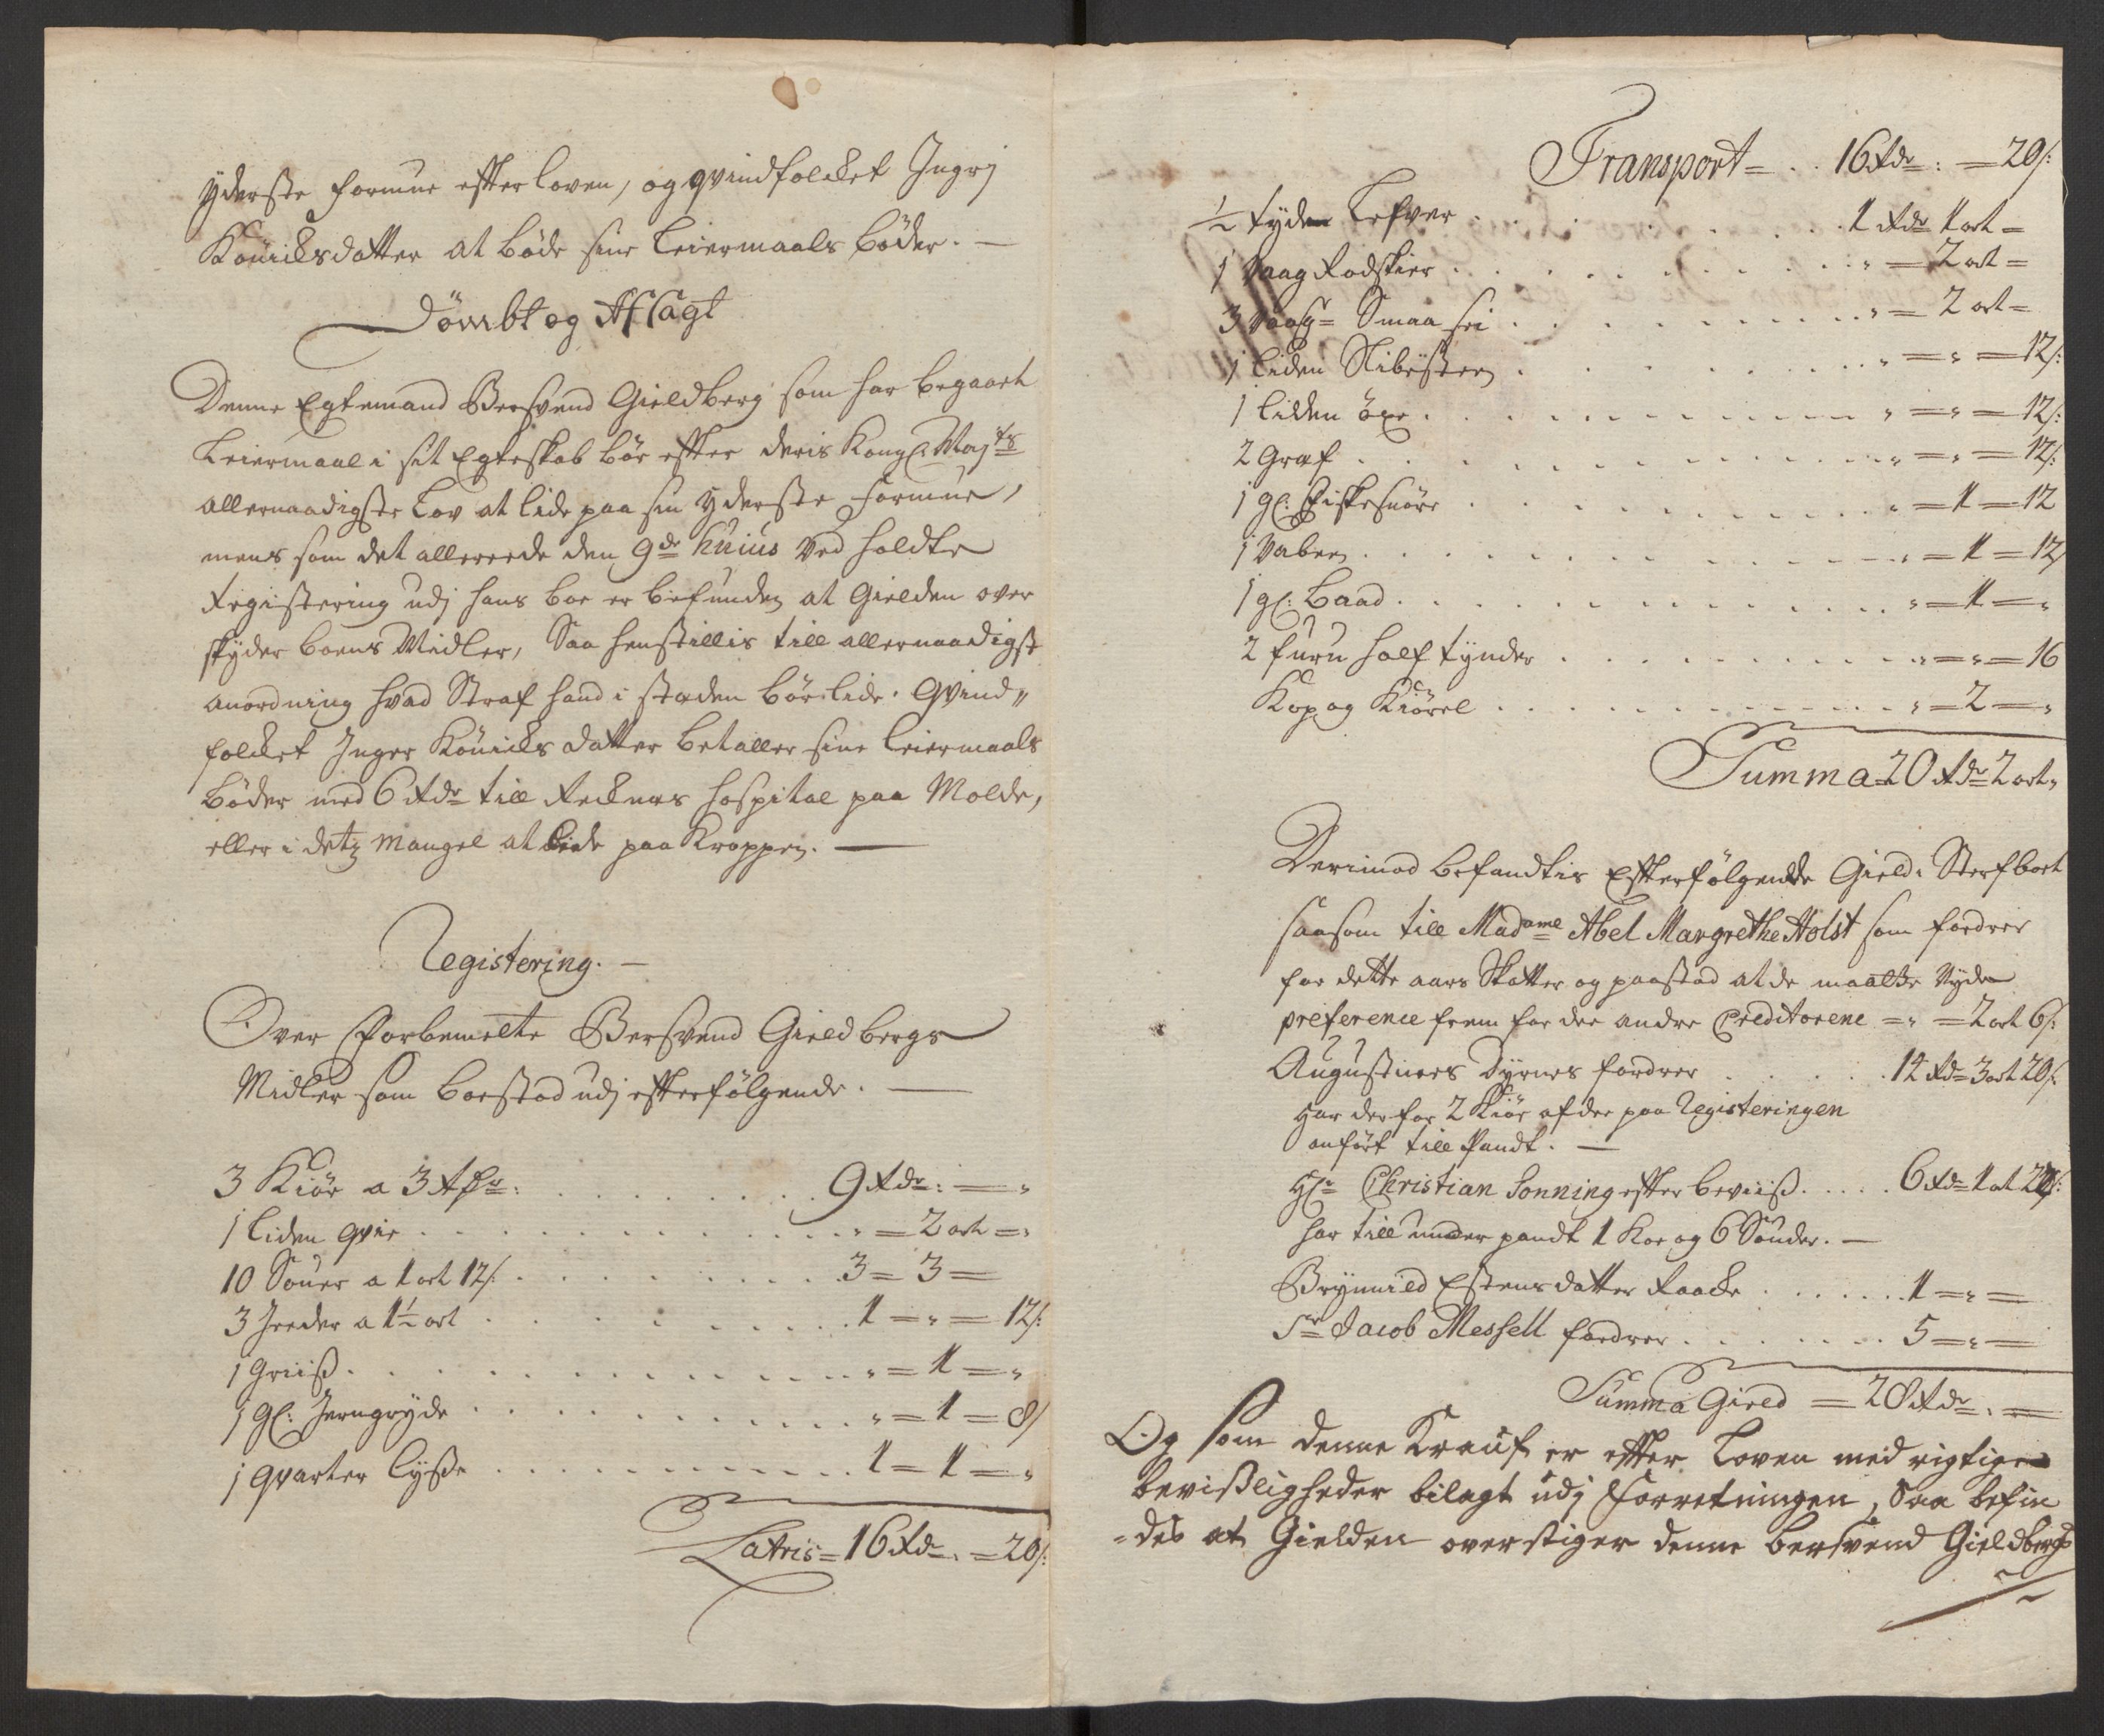 Yderste formue effter loven, og qvindfolcket Ingrj
Kouicksdatter at bøde sine Leiermaals bøder. —
Dømbt og Afsagt
Denne Egtemand Bersvend Gieldberg som har begaaet
Leiermaal i sit Egteskab bør effter deris Kongl: Maj:ts
allernaadigste Lov at lide paa sin Yderste formue,
mens som det allereede den 9de huius ved holdte
Registering udj hans boe er befunden at Gielden over
skyder boens Midler, Saa henstillis till allernaadigst
anordning hvad Straf hand i stæden bør lide. Qvind„
folcket Inger Kouicks datter betaller sine Leiermaals
bøder med 6 rdr till Recknes Hospital paa Molde,
eller i detz Mangel at lide paa Kroppen. —
Registering. —
Over Forbemelte Bersvend Gieldbergs
Midler som bestod udj effterfølgende. —
3 Kiør a 3 rdr: . . . 9 rdr: — „
1 liden qvie . . . „ = 2 ort = „
10 Souer a 1 ort 12 s: . . . 3 = 3 =
3 Geeder a 1½ ort . . . 1 = „ = 12 s:
1 Griiß . . . „ = 1 = „
1 gl: Jerngryde . . . „ = 1 = 8 s
1 qvarter Lyße . . . 1 = 1 = „
Latris = 16 rdr „ = 20 s:
Transport = . . 16 rdr : = 20 s:
½ tynde Lefver . . . 1 rdr 1 ort =
1 Vaag Rodskier . . . „ = 2 ort =
3 Vaag = Smaa sei . . . „ = 2 ort =
1 liden Slibesteen . . . „ = „ = 12 s:
1 liden øxe . . . „ = „ = 12 s:
2 Græf . . . „ = „ = 12 s:
1 gl: Fiskesnøre . . . „ = 1 = 12
1 Vaben . . . „ = 1 = 12
1 gl: Baad . . . „ = 1 = „
2 furu half tynder . . . „ = „ = 16
Kop og Kiørel . . . „ = 2 = „
Summa 20 rdr 2 ort „
Derimod befandtis Effterfølgende Gield i Sterfboet
saasom till Madame Abel Margrethe Holst som fordrer
for dette aars Skatter og paastod at de maatte Nyde
preference frem for dee andre Creditorene = „ = 2 ort 6 s:
Augustinus Dyrnes fordrer . . . 14 rdr 3 ort 20 s:
har der for 2 Kiør af dee paa Registeringen
anført till Pandt. —
Hr: Christian Sonning effter beviiß . . . 6 rdr 1 ort 22 s:
har till under pandt 1 Koe og 6 Souder. —
Brynnild Estensdatter Raaes . . . 1 = „ =
Sr Jacob Messell fordrer . . . 5 = „ =
Summa Gield = 28 rdr „ =
Og som denne Krauf er effter Loven med rigtige
bevißligheder bilagt udj Forretningen, Saa befin
-des at Gielden overstiger denne Bersvend Gieldbergs